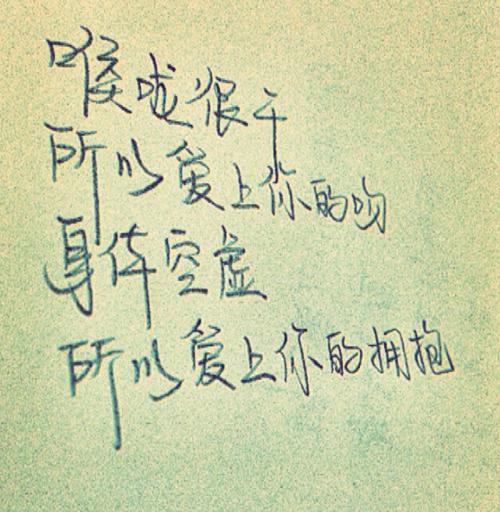 喉咙很干
所以爱上你的吻
身体空虚
所以爱上你的拥抱